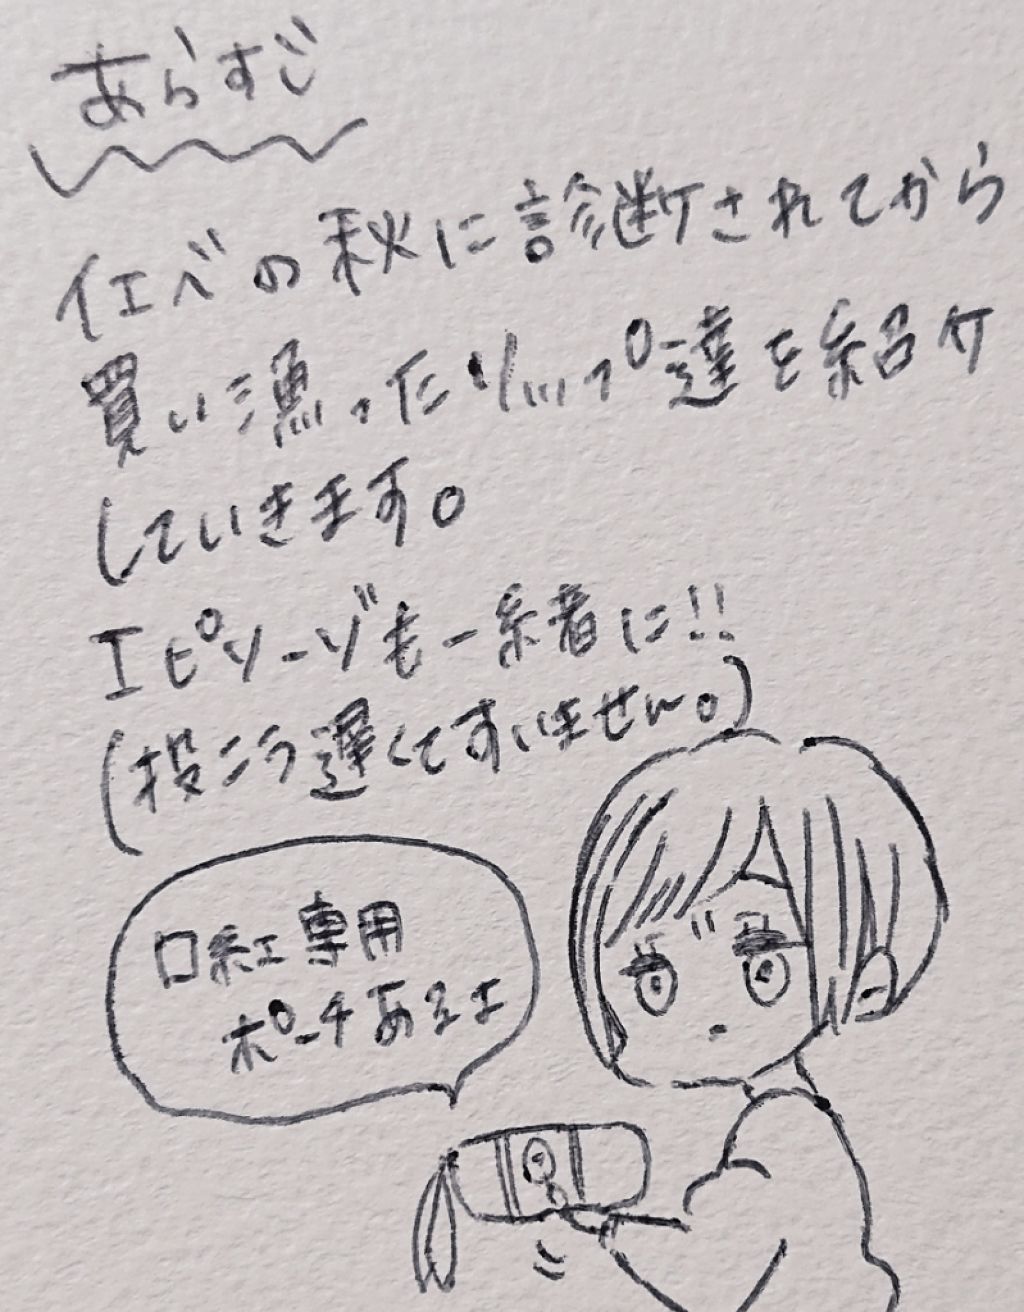 あらすじ
イエベの秋に診断されてから
買い漁ったリップ達を紹介
していきます。
エピソードも一緒に!!
(投こう遅くてすいません。)
口紅専用
ポーチあるよ